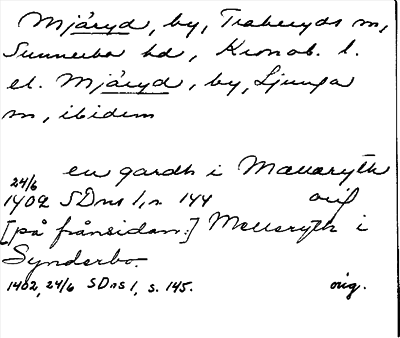 Mjäryd, by, Traheryds sn,
Sunnerbo hd, Kronob. l.
el. Mjäryd, by, Ljunga
sn, ibidem
en gardh i Mæuaryth
24/6
1402 SDns 1, s. 144 orig
[på frånsidan:] Meuaryth i
Synderbo.
1402, 24/6 SDns 1, s. 145. orig.